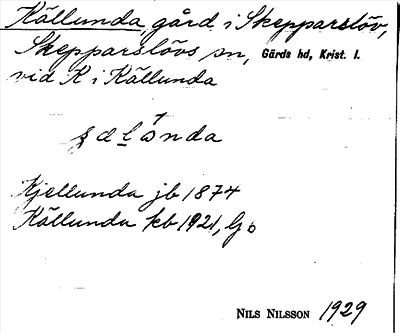 Källunda gård i Skepparslöv,
Skepparslövs sn, Gärds hd, Krist. l.
vid K i Källunda
Kjellunda jb 1874
Källunda kb 1921, Go
NILS NILSSON 1929